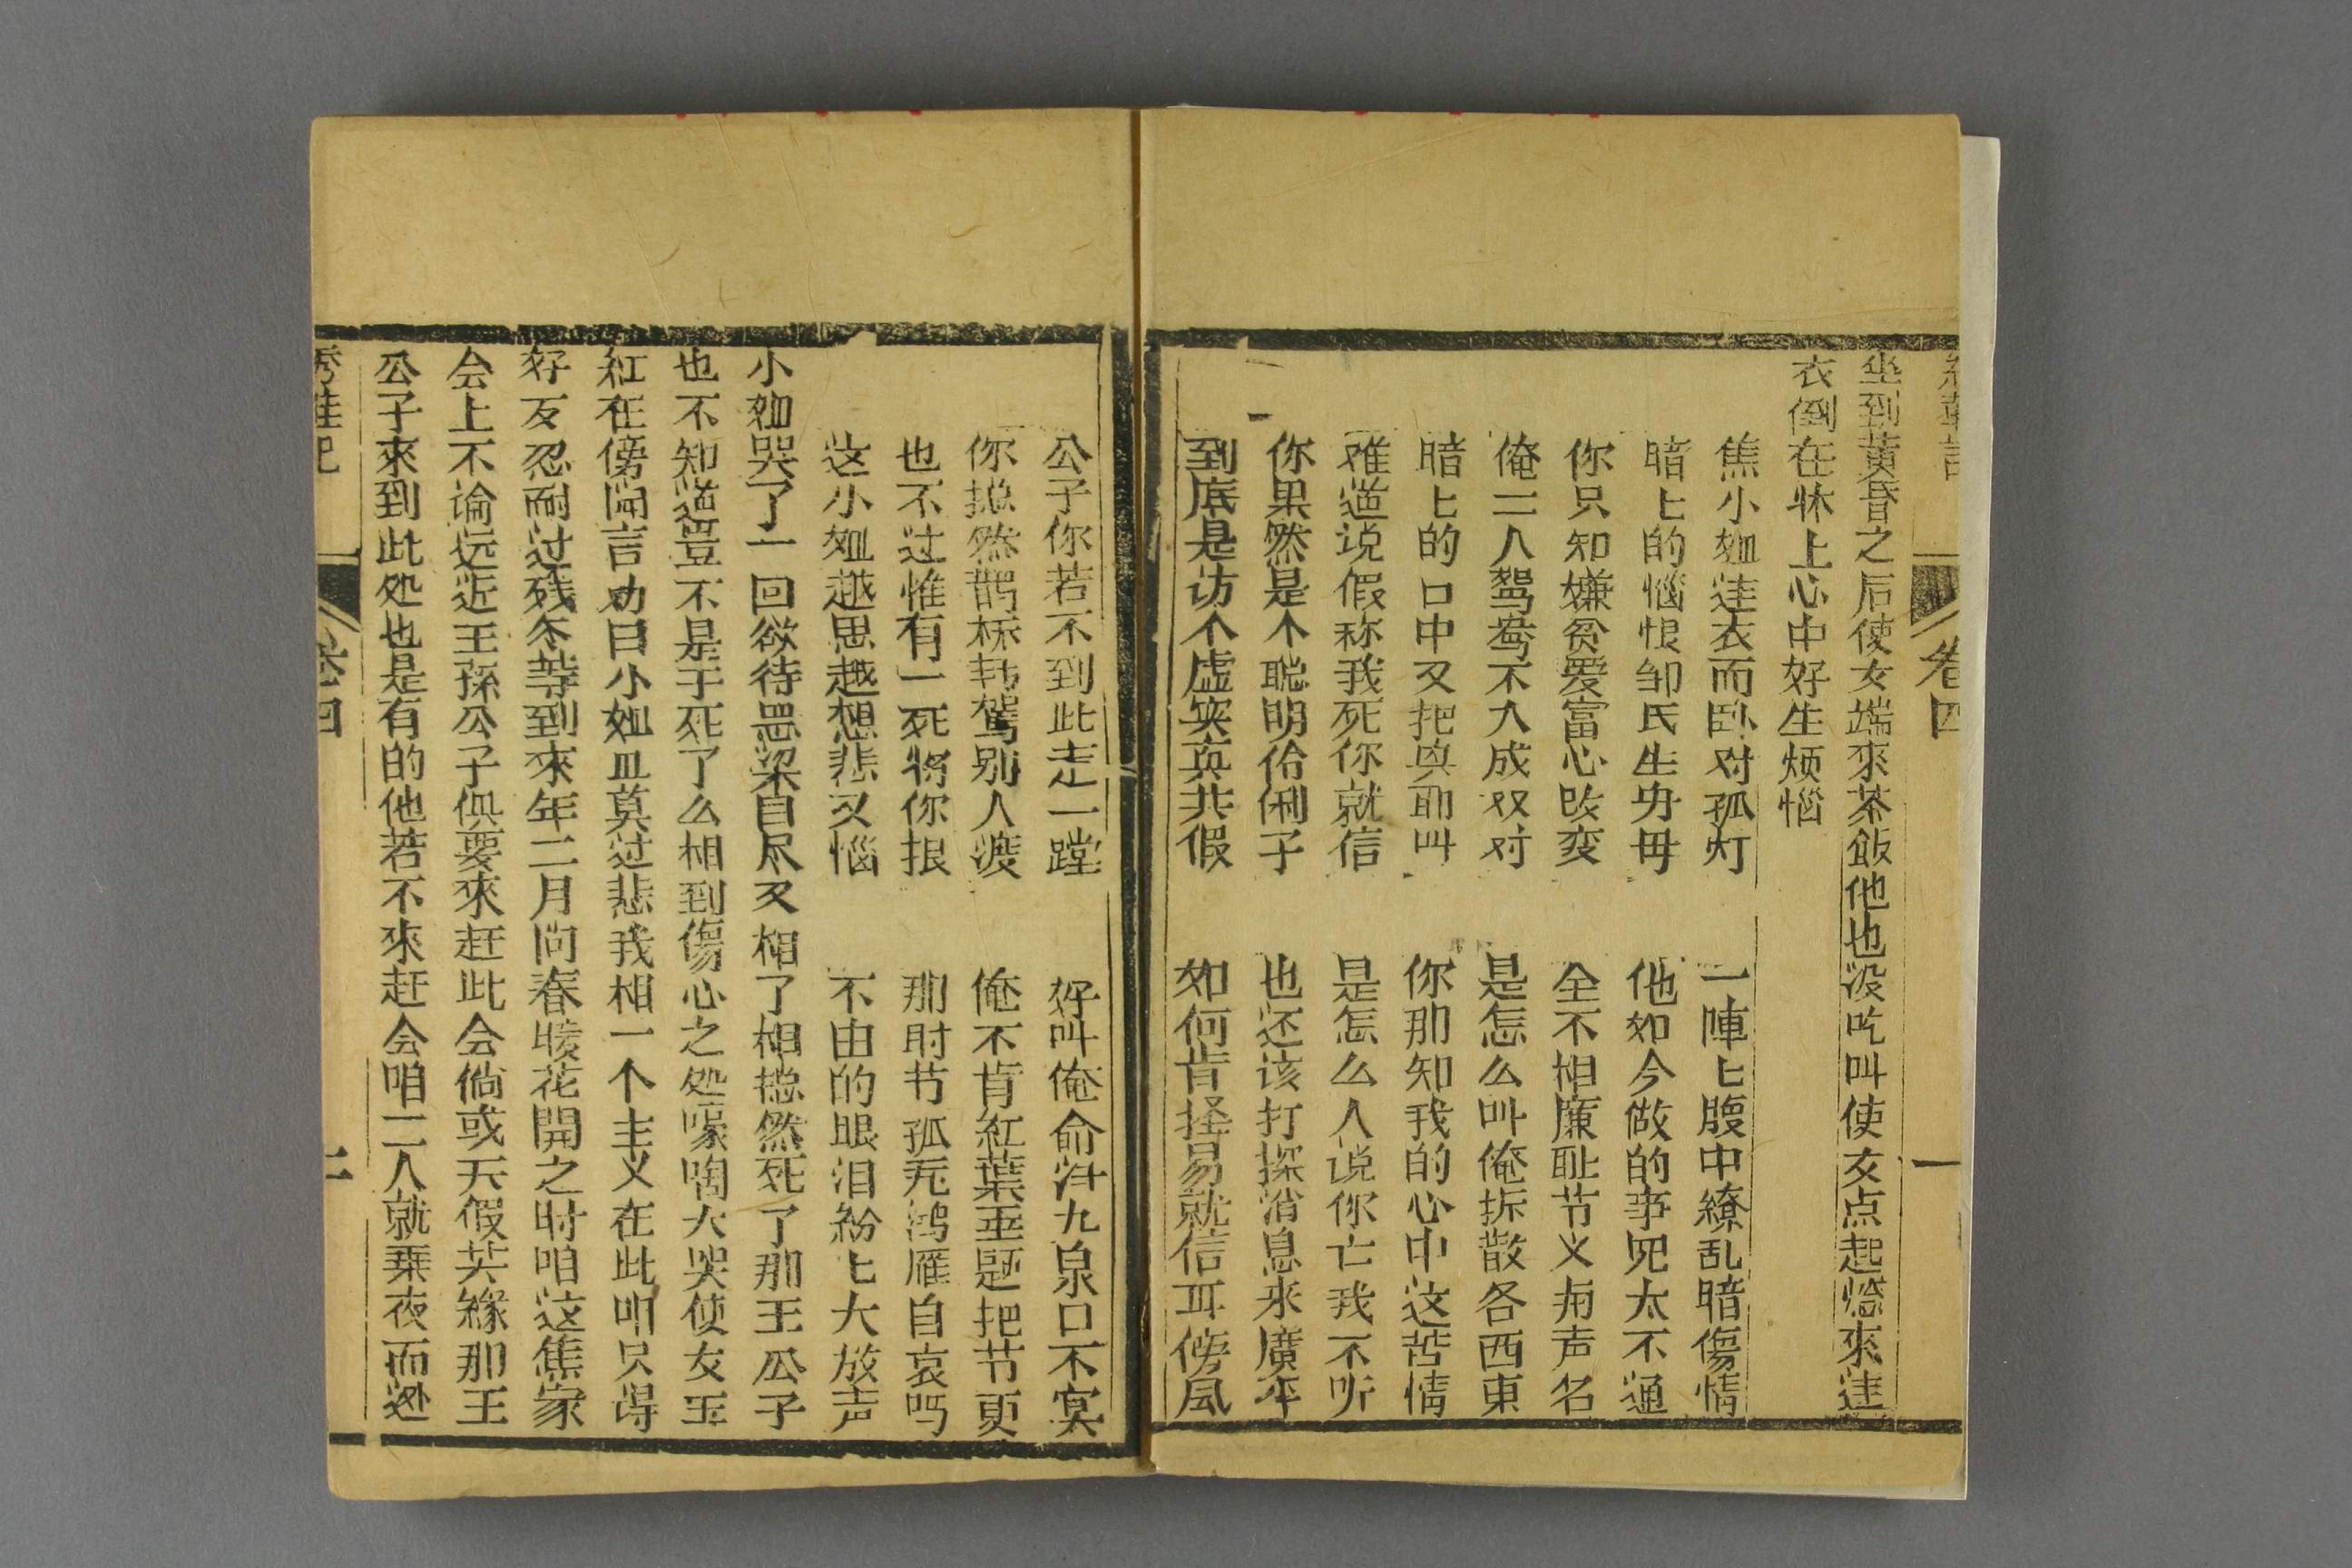 卷四
一
坐到黃昏之后使女端來茶飯他也没吃叫使女点起燈來
衣倒在牀上心中好生烦惱
焦小姐衣而卧对孤灯 一陣匕腹中繚乱暗傷情
暗匕的惱恨邹氏生身毋 他如今做的事児太不通
你只知嫌贫爱富心改变 全不相廉耻节义声名
俺二人鸳鸯不久成双对 是怎么叫俺拆散各西東
暗匕的口中又把耶叫 你那知我的心中这苦情
难道说假称我死你就信 是怎么人说你亡我不听
你果然是个聪明伶俐子 也还该打探消息来廣平
到底是访个虚实真共假 如何肯择易就信耳傍风
公子你若不到此走一蹚 好叫俺命归九泉口不寞
你捴然鹊桥转驾别人渡 俺不肯紅葉垂题把节更
也不过惟有一死将你报 那时节孤鸿雁自哀鸣
这小姐越思越想悲又惱 不由的眼泪紛匕大放声
小姐哭了一回欲待悬梁自尽又相了相捴然死了那王公子
也不知道豈不是于死了么相到傷心之处嚎啕大哭使女玉
紅在傍闻言劝曰小姐且莫过悲我相一个主义在此叩只得
好友忍耐过残冬等到來年二月间春暖花開之时咱这焦家
会上不论远近王孫公子俱要來赶此会倘或天假其緣那王
公子來到此处也是有的他若不來赶会咱二人就乗夜而逃
卷四
二